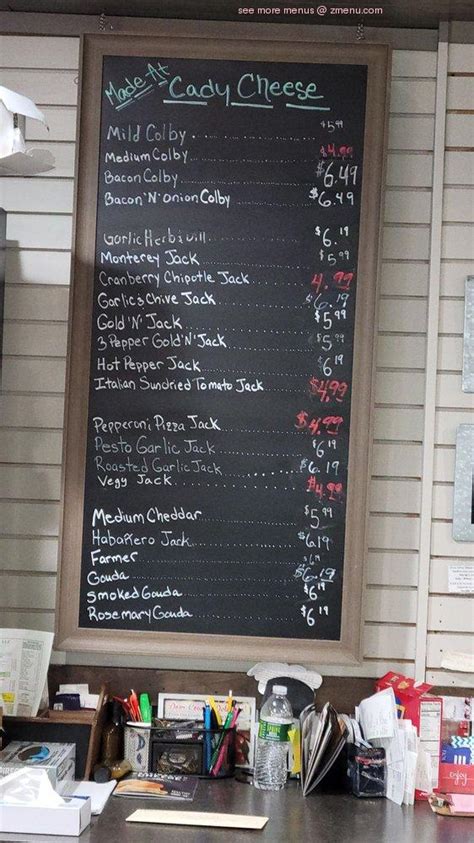 see more menus @ zmenu.com
Made At Cady Cheese
Mild Colby $5.99
Medium Colby $4.99
Bacon Colby $6.49
Bacon 'N' Onion Colby $6.49
Garlic Herb & Dill $6.19
Monterey Jack $5.99
Cranberry Chipotle Jack 4.99
Garlic & Chive Jack $6.19
Gold 'N' Jack $5.99
3 Pepper Gold 'N' Jack $5.99
Hot Pepper Jack $6.19
Italian Sundried Tomato Jack $4.99
Pepperoni Pizza Jack $4.99
Pesto Garlic Jack $6.19
Roasted Garlic Jack $6.19
Vegy Jack $4.99
Medium Cheddar $5.99
Habañero Jack $6.19
Farmer $6.19
Gouda $6.19
Smoked Gouda $6.19
Rosemary Gouda $6.19
enjoy